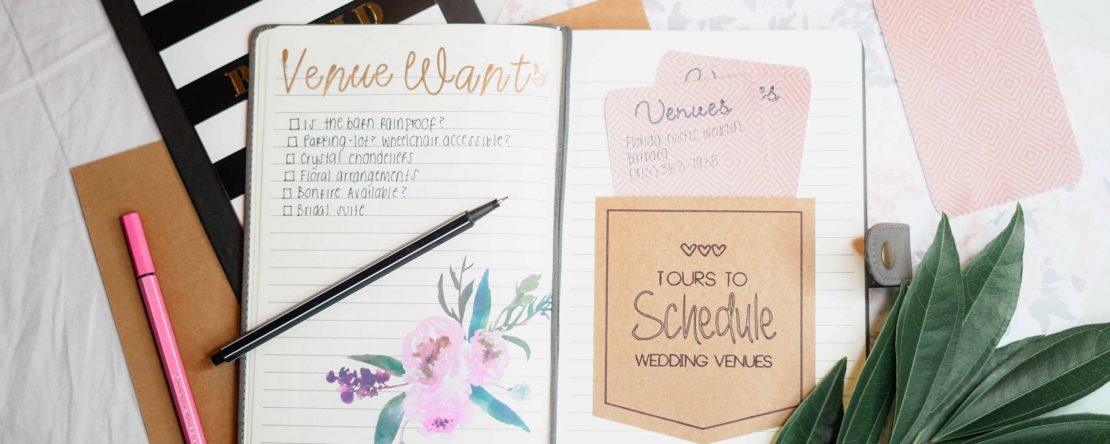 Venue Want's
Is the barn rainproof?
Parking-lot? Wheelchair accessible?
Crystal chandeliers
Floral arrangements
Bonfire Available?
Bridal suite
Venues
Florida rustic weddin
Barbara
TOURS TO
Schedule
WEDDING VENUES